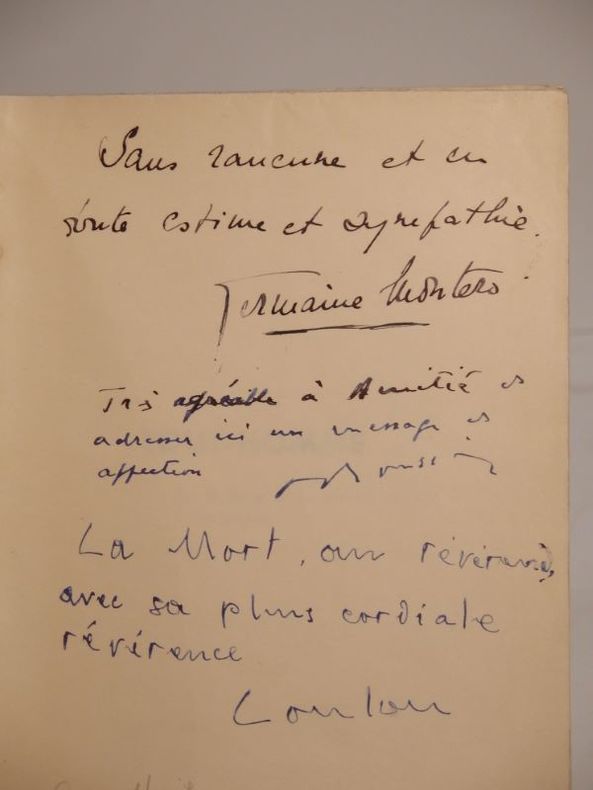 Sans rancune et en
toute estime et sympathie.
Germaine Montero
Très agréable à Amitié et
adresser ici un message et
affection
La Mort, au révérend,
avec sa plus cordiale
révérence
Coulon